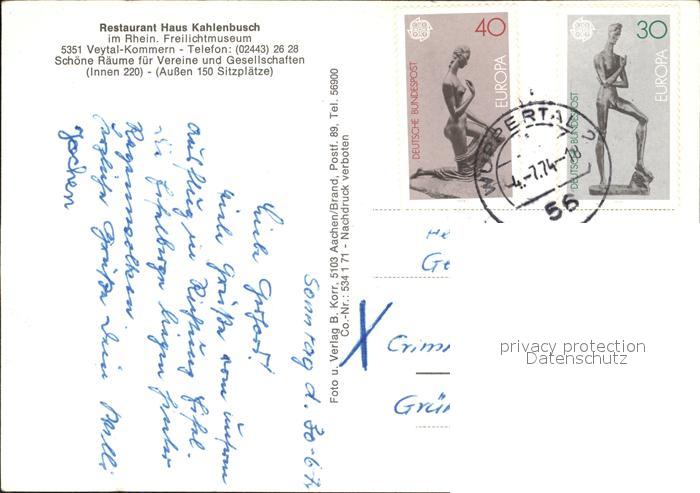 Restaurant Haus Kahlenbusch
im Rhein. Freilichtmuseum
5351 Veytal-Kommern - Telefon: (02443) 26 28
Schöne Räume für Vereine und Gesellschaften
(Innen 220) - (Außen 150 Sitzplätze)
40
DEUTSCHE BUNDESPOST
EUROPA
30
DEUTSCHE BUNDESPOST
EUROPA
WUPPERTAL 2
-4.-7.74-
56
Sonntag d. 30-6-74
Liebe
viele Grüße von unserem
Ausflug in Richtung Eifel.
Die Eifelberge liegen hinter
Regenwolken.
Herzliche Grüße Dein Willi
Jochen
Foto u. Verlag B. Korr, 5103 Aachen/Brand, Postf. 89, Tel. 56900
Co.-Nr.: 534 1 71 - Nachdruck verboten
He
Ge
X Crimm
Grün
privacy protection
Datenschutz